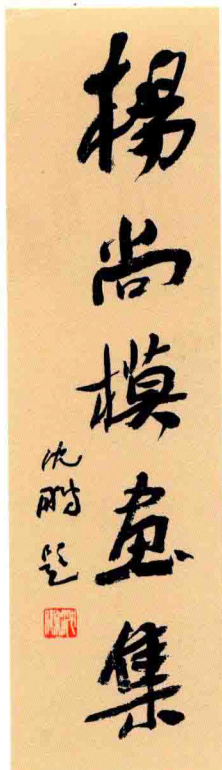 楊尚模画集
沈鹏题